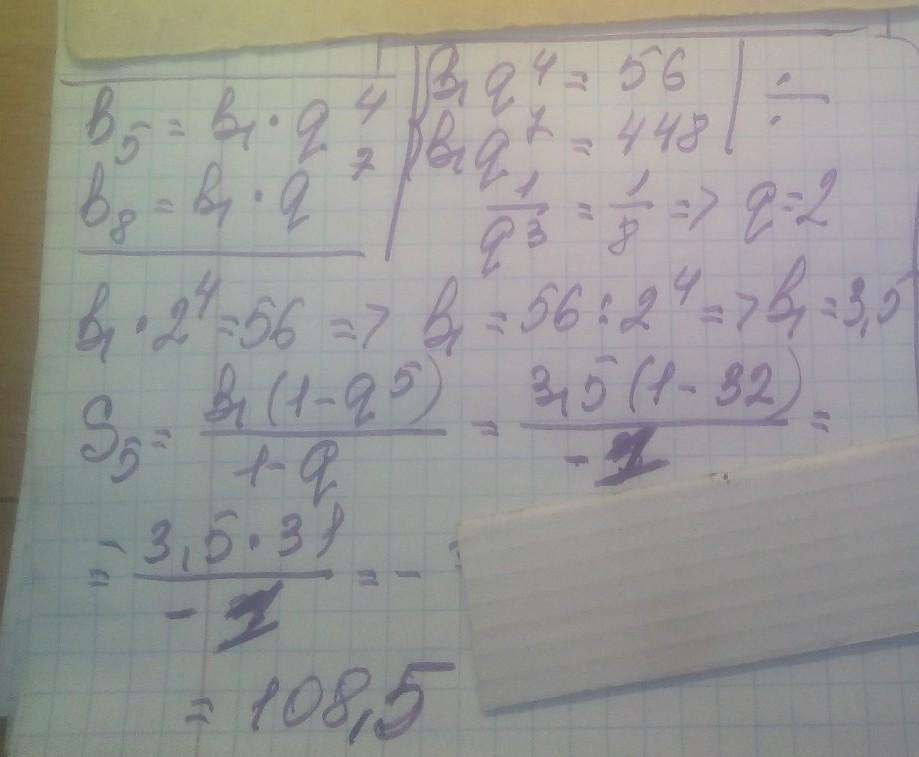 b₅ = b₁ · q⁴
b₈ = b₁ · q⁷
b₁q⁴ = 56
b₁q⁷ = 448 | ÷
1/q³ = 1/8 => q = 2
b₁ · 2⁴ = 56 => b₁ = 56 : 2⁴ => b₁ = 3,5
S₅ = b₁(1-q⁵)/1-q = 3,5(1-32)/-1 =
= 3,5·31/-1 = -
= 108,5